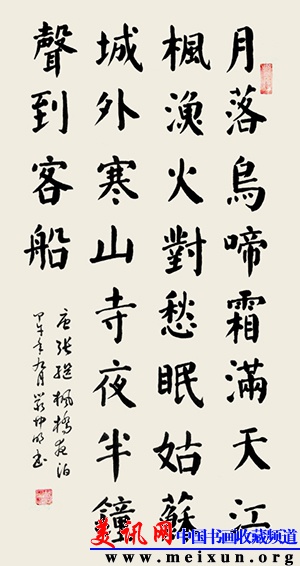 月落烏啼霜滿天江
楓漁火對愁眠姑蘇
城外寒山寺夜半鐘
聲到客船
唐张继枫橋夜泊
年九月
美讯网 中国书画收藏频道
www.meixun.org